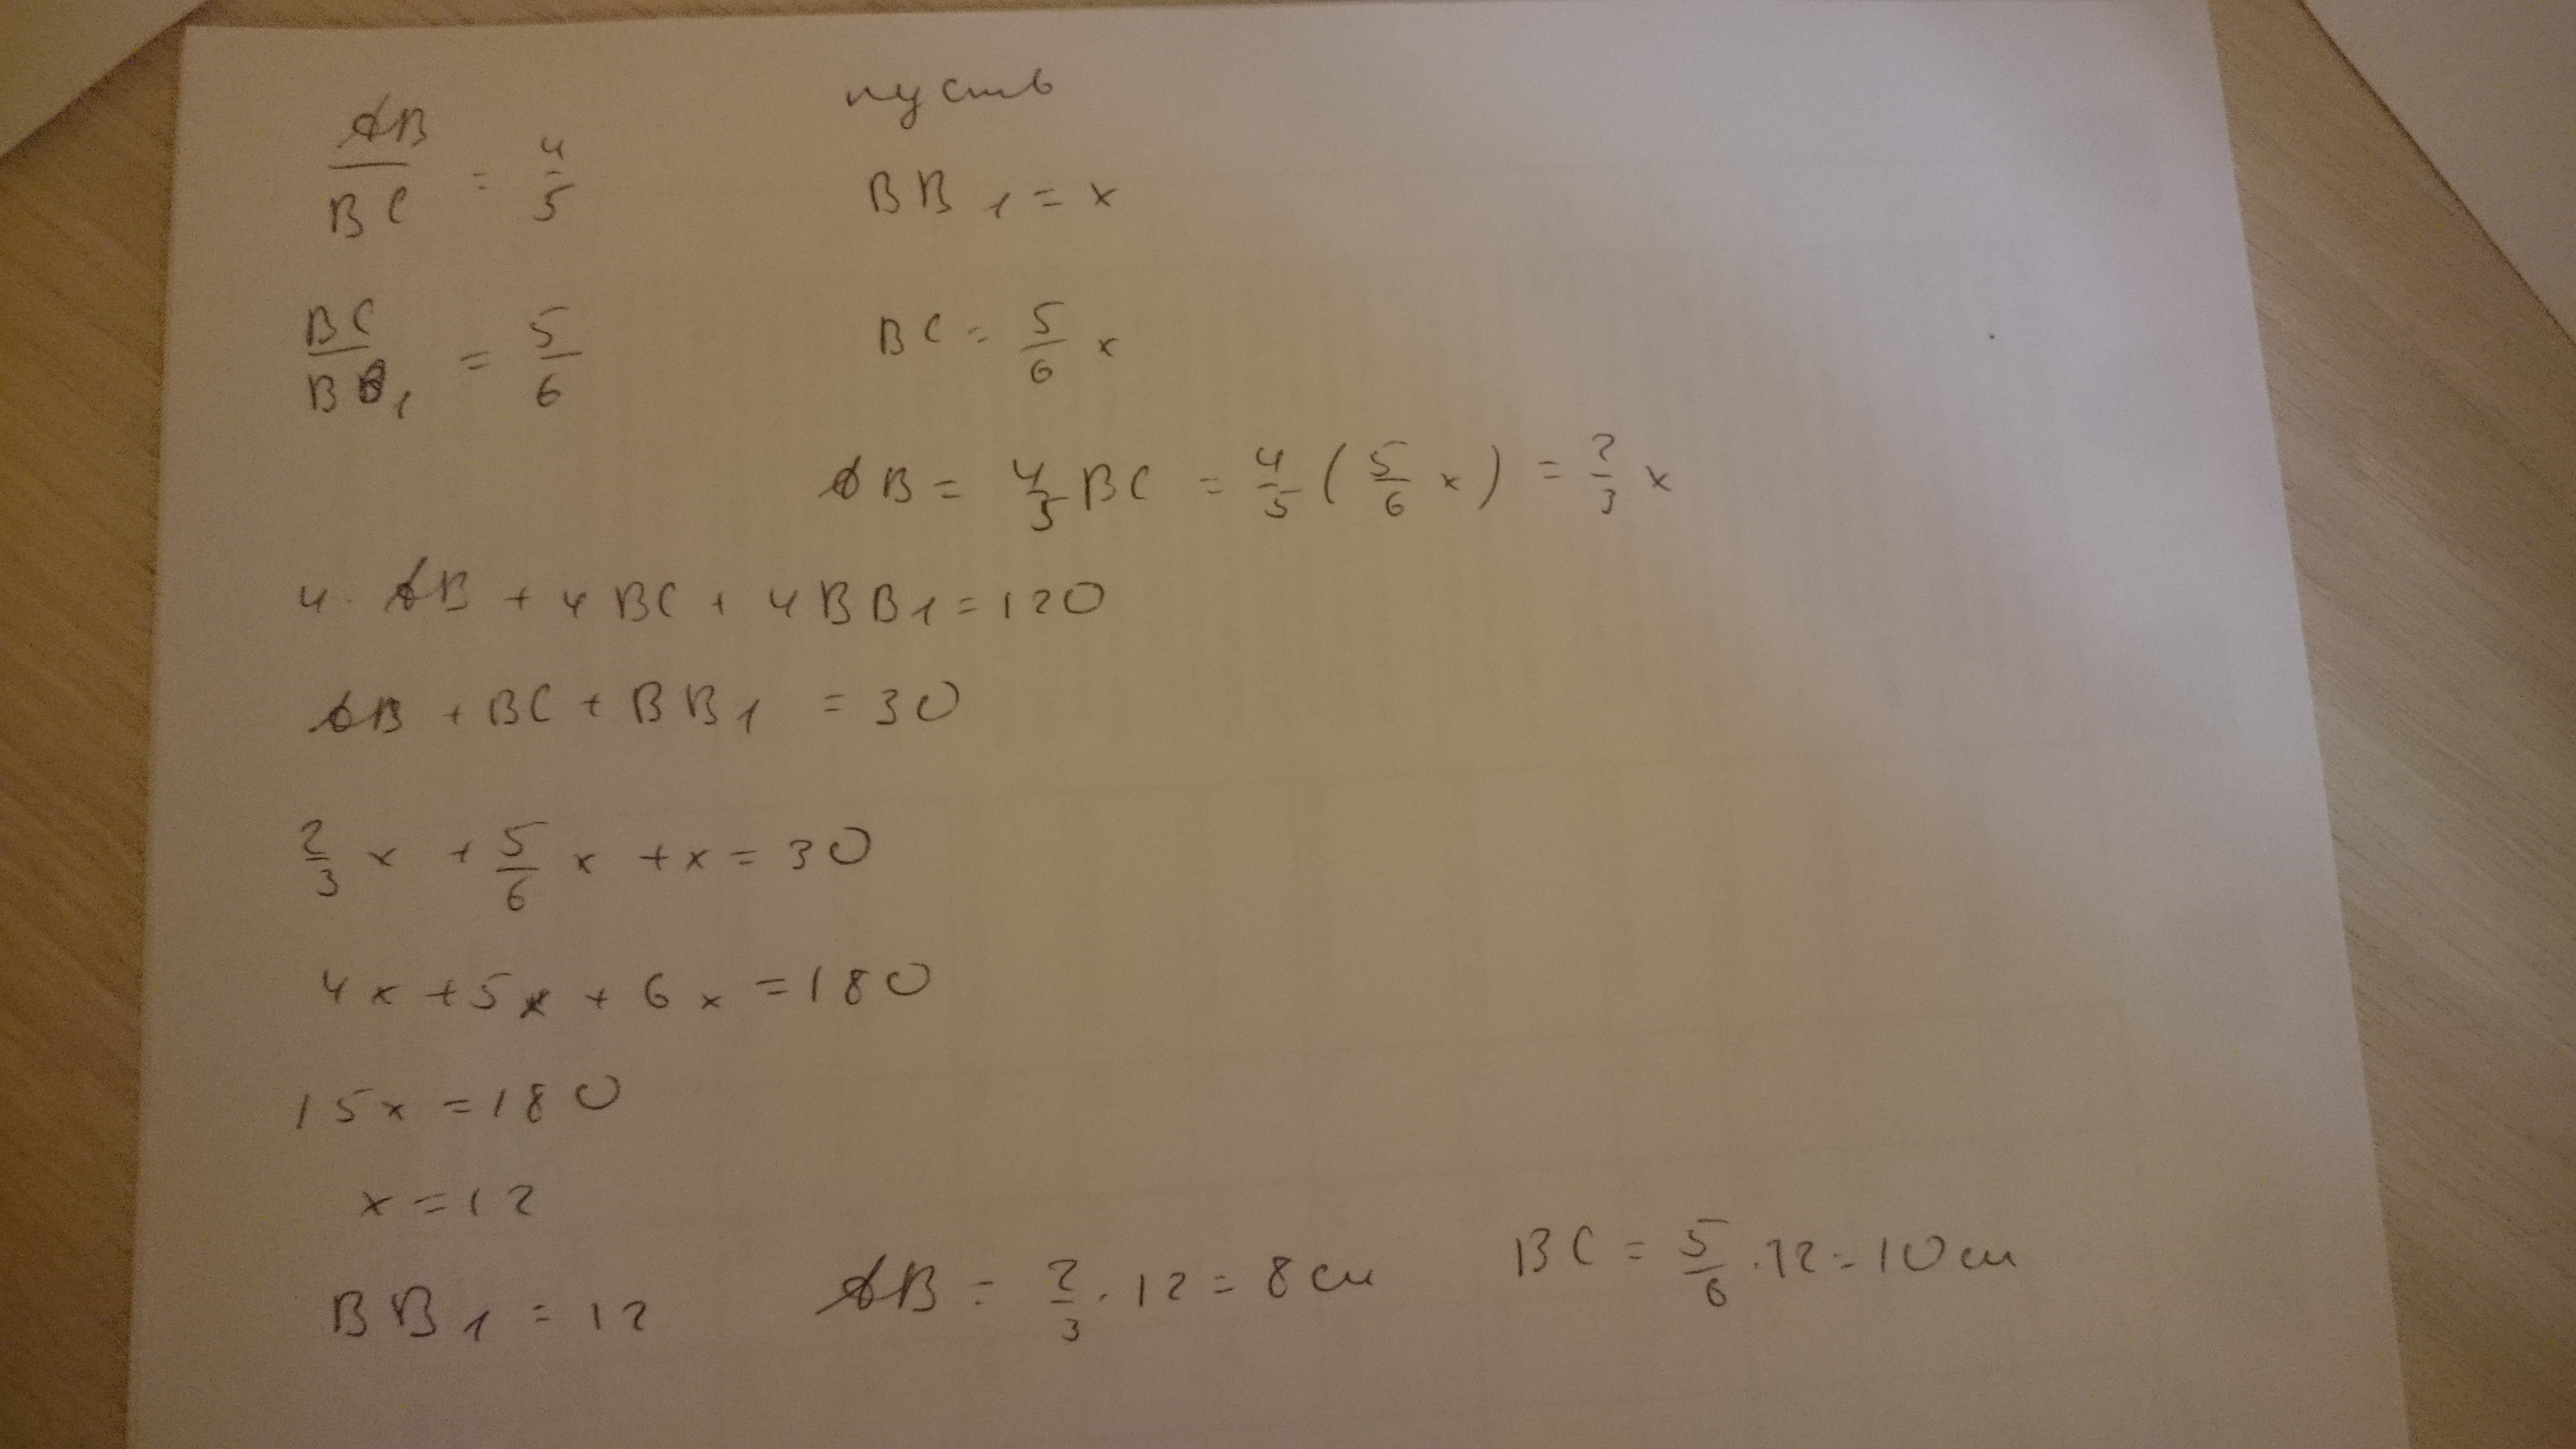 AB/BC = 4/5
пусть
BB₁ = x
BC/BB₁ = 5/6
BC = 5/6 x
AB = 4/5 BC = 4/5 ( 5/6 x ) = 2/3 x
4 · AB + 4 BC + 4 BB₁ = 120
AB + BC + BB₁ = 30
2/3 x + 5/6 x + x = 30
4x + 5x + 6x = 180
15x = 180
x = 12
BB₁ = 12
AB = 2/3 · 12 = 8 см
BC = 5/6 · 12 = 10 см